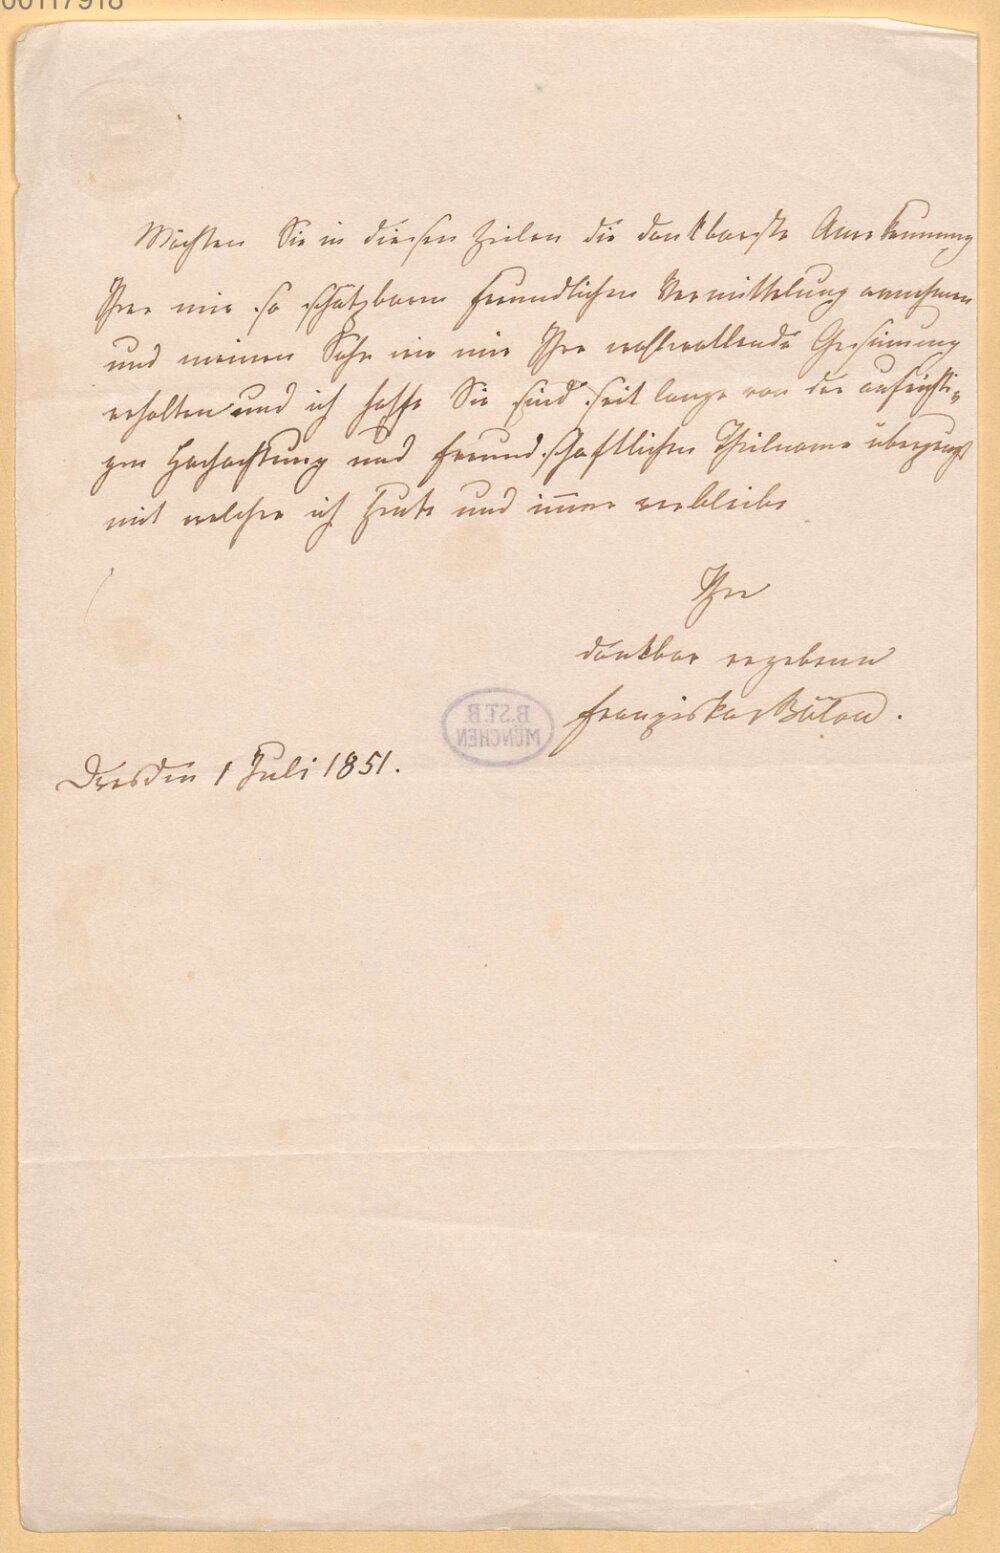 00117918
Möchten Sie in diesen Zeilen die dankbarste Anerkennung
Ihrer mir so schätzbaren freundlichen Vermittelung annehmen
und meinem Sohn wie mir Ihre wohlwollende Gesinnung
erhalten und ich hoffe Sie sind seit lange von der aufrichti-
gen Hochachtung und freundschaftlichen Theilname überzeugt
mit welcher ich heute und immer verbleibe
Ihre
dankbar ergebene
Franziska Bülow.
B.ST.B.
MÜNCHEN
Dresden 1 Juli 1851.